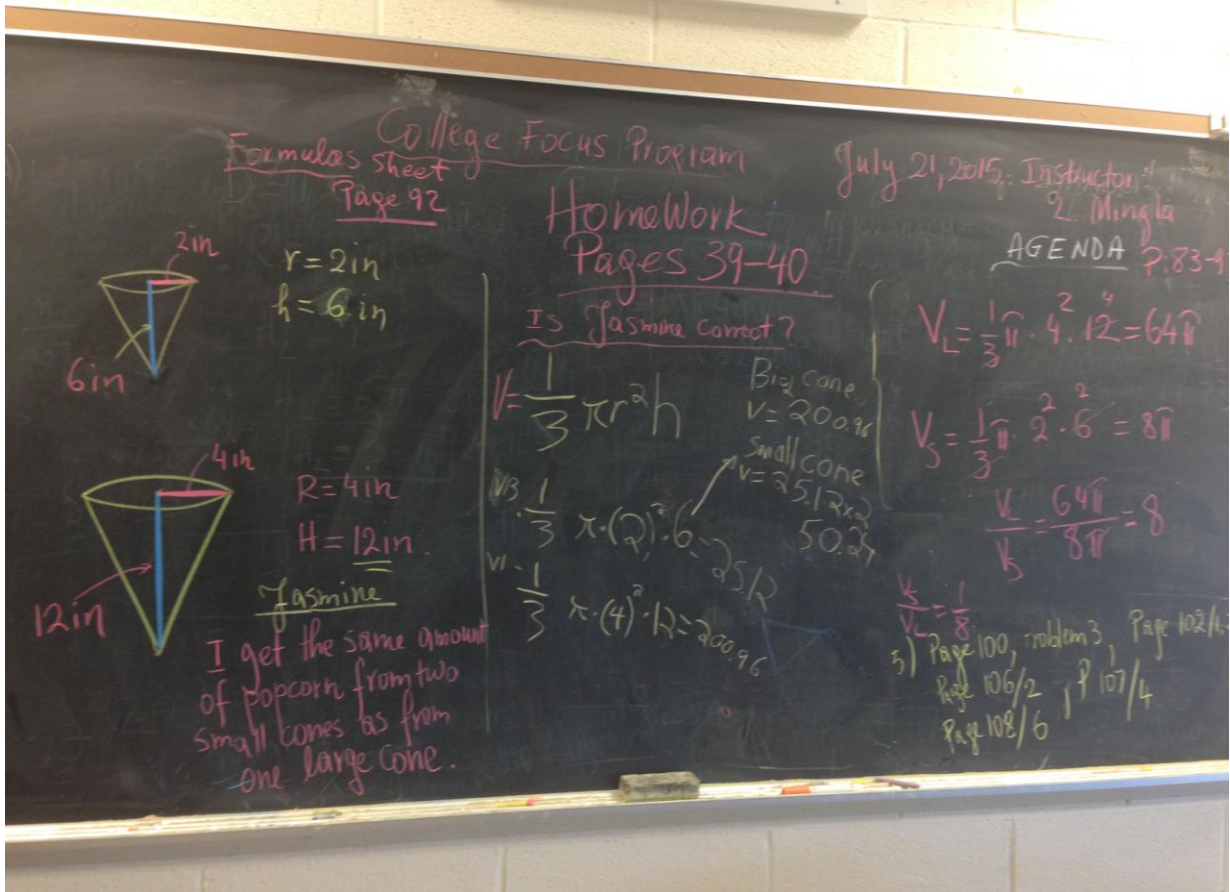 College Focus Program
Formulas Sheet
Page 92
July 21, 2015. Instructor:
Mingla
HomeWork
Pages 39-40
AGENDA P.83-9
2in
r=2in
h=6 in
6in
4in
R=4in
H=12in.
12in
Jasmine
I get the same amount
of popcorn from two
small cones as from
one large cone.
Is Jasmine correct?
V=1/3 πr²h
Big cone
V=200.96
Small cone
V=25.12×2
50.24
1/3 π·(2)²·6=25.12
1/3 π·(4)²·12=200.96
V_L=1/3 π·4²·12⁴=64π
V_S=1/3 π·2²·6²=8π
V_L/V_S=64π/8π=8
V_S/V_L=1/8
Page 100, problem 3, Page 102/1,2
Page 106/2, P 107/4
Page 108/6